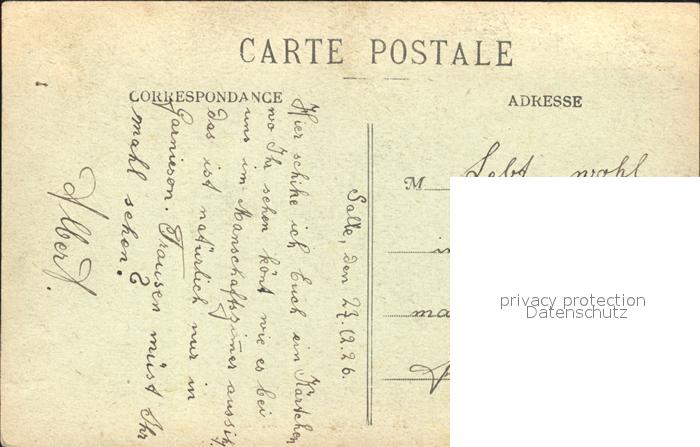 CARTE POSTALE
CORRESPONDANCE
ADRESSE
Salle, den 23.12.26.
Hier schike ich Euch ein Kärtchen
wo Ihr sehen könt wie es bei
uns im Manschaftszimer aussiht
das ist natürlich nur in
Garnieson. Trausen müst Ihr
mahl sehen?
Albert.
M Lebt wohl
privacy protection
Datenschutz